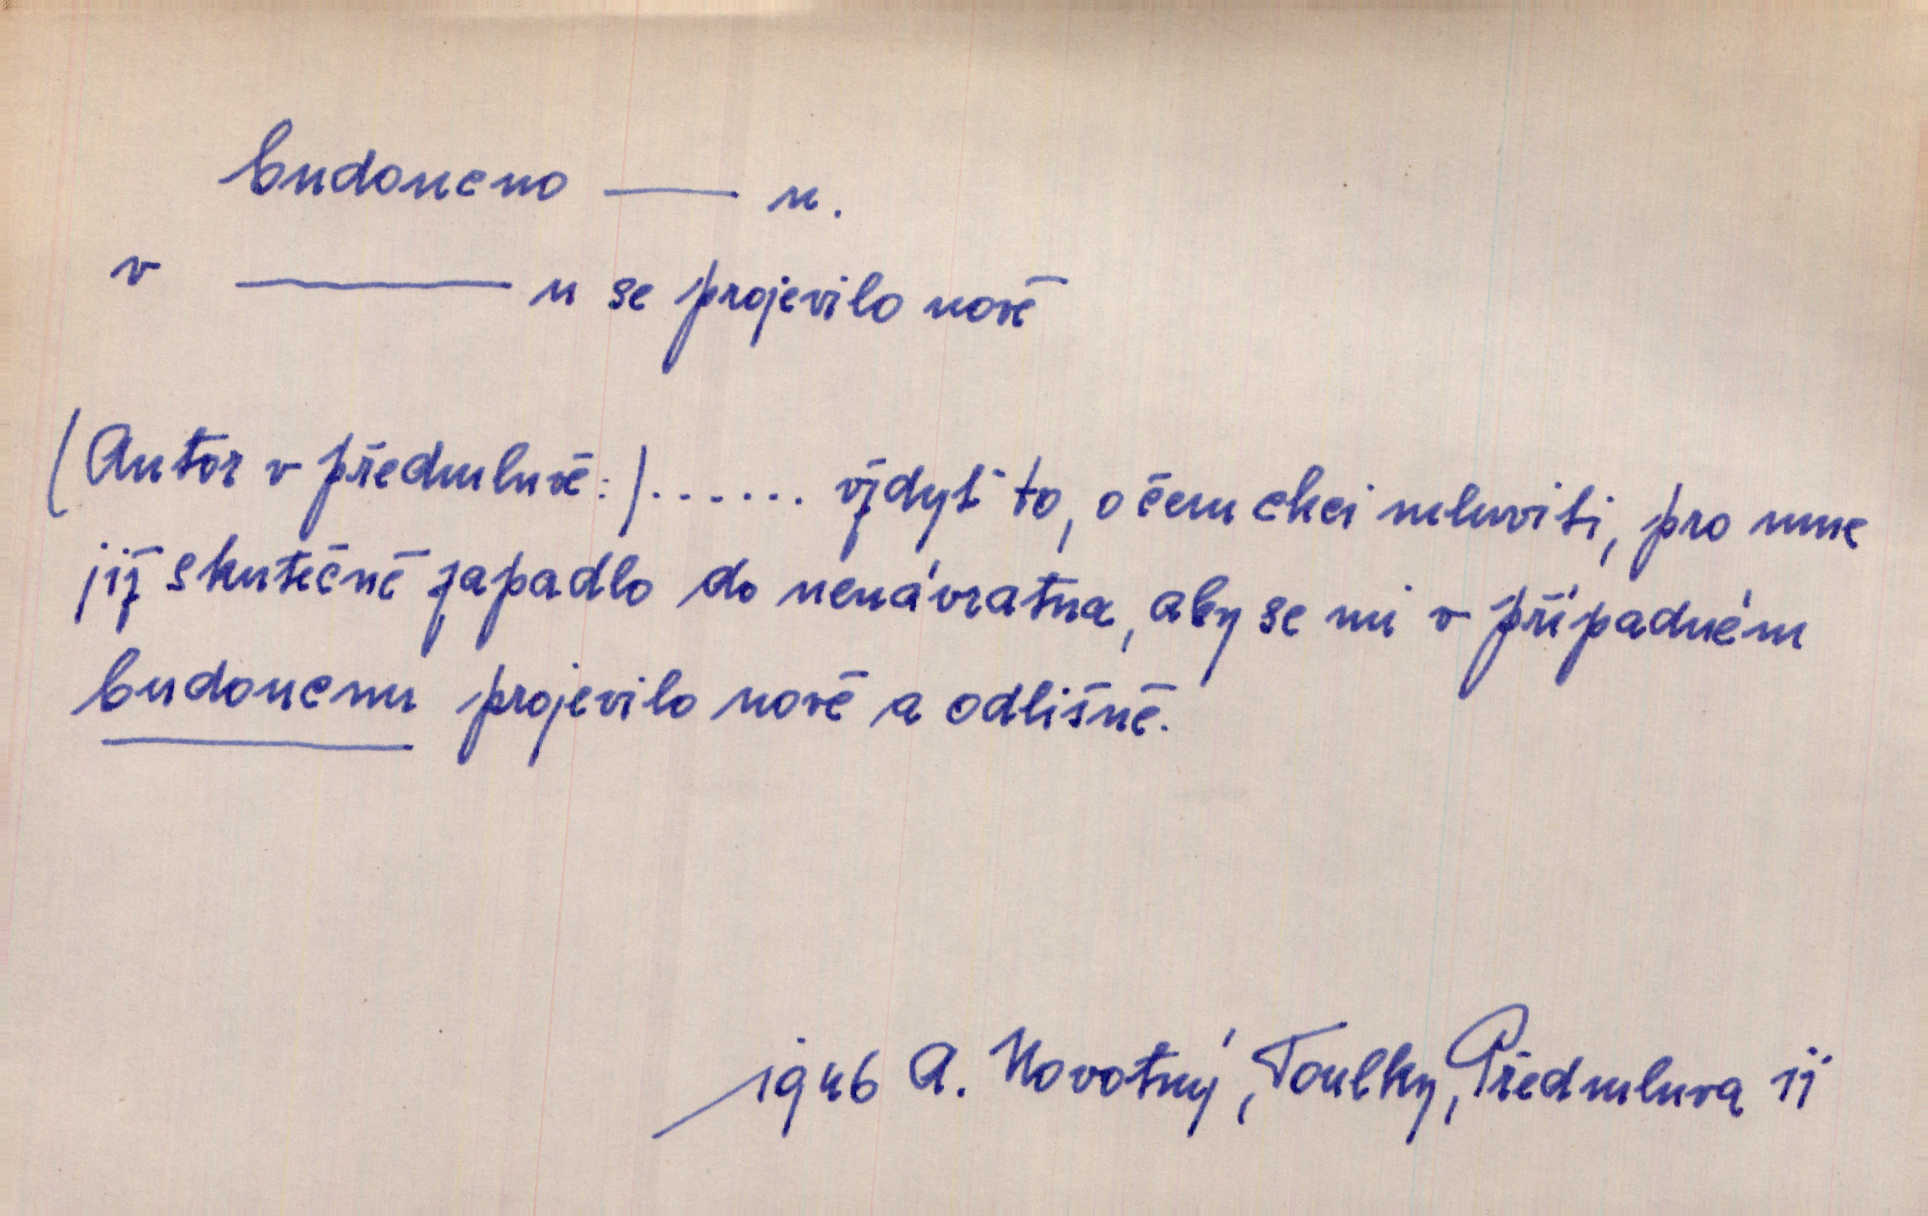 budoucno —— n.
v ———— u se projevilo nově
(Autor v předmluvě:)....... vždyť to, o čem chci mluviti, pro mne
již skutečně zapadlo do nenávratna, aby se mi v případném
budoucnu projevilo nově a odlišně.
1946 A. Novotný, Toulky, Předmluva ii